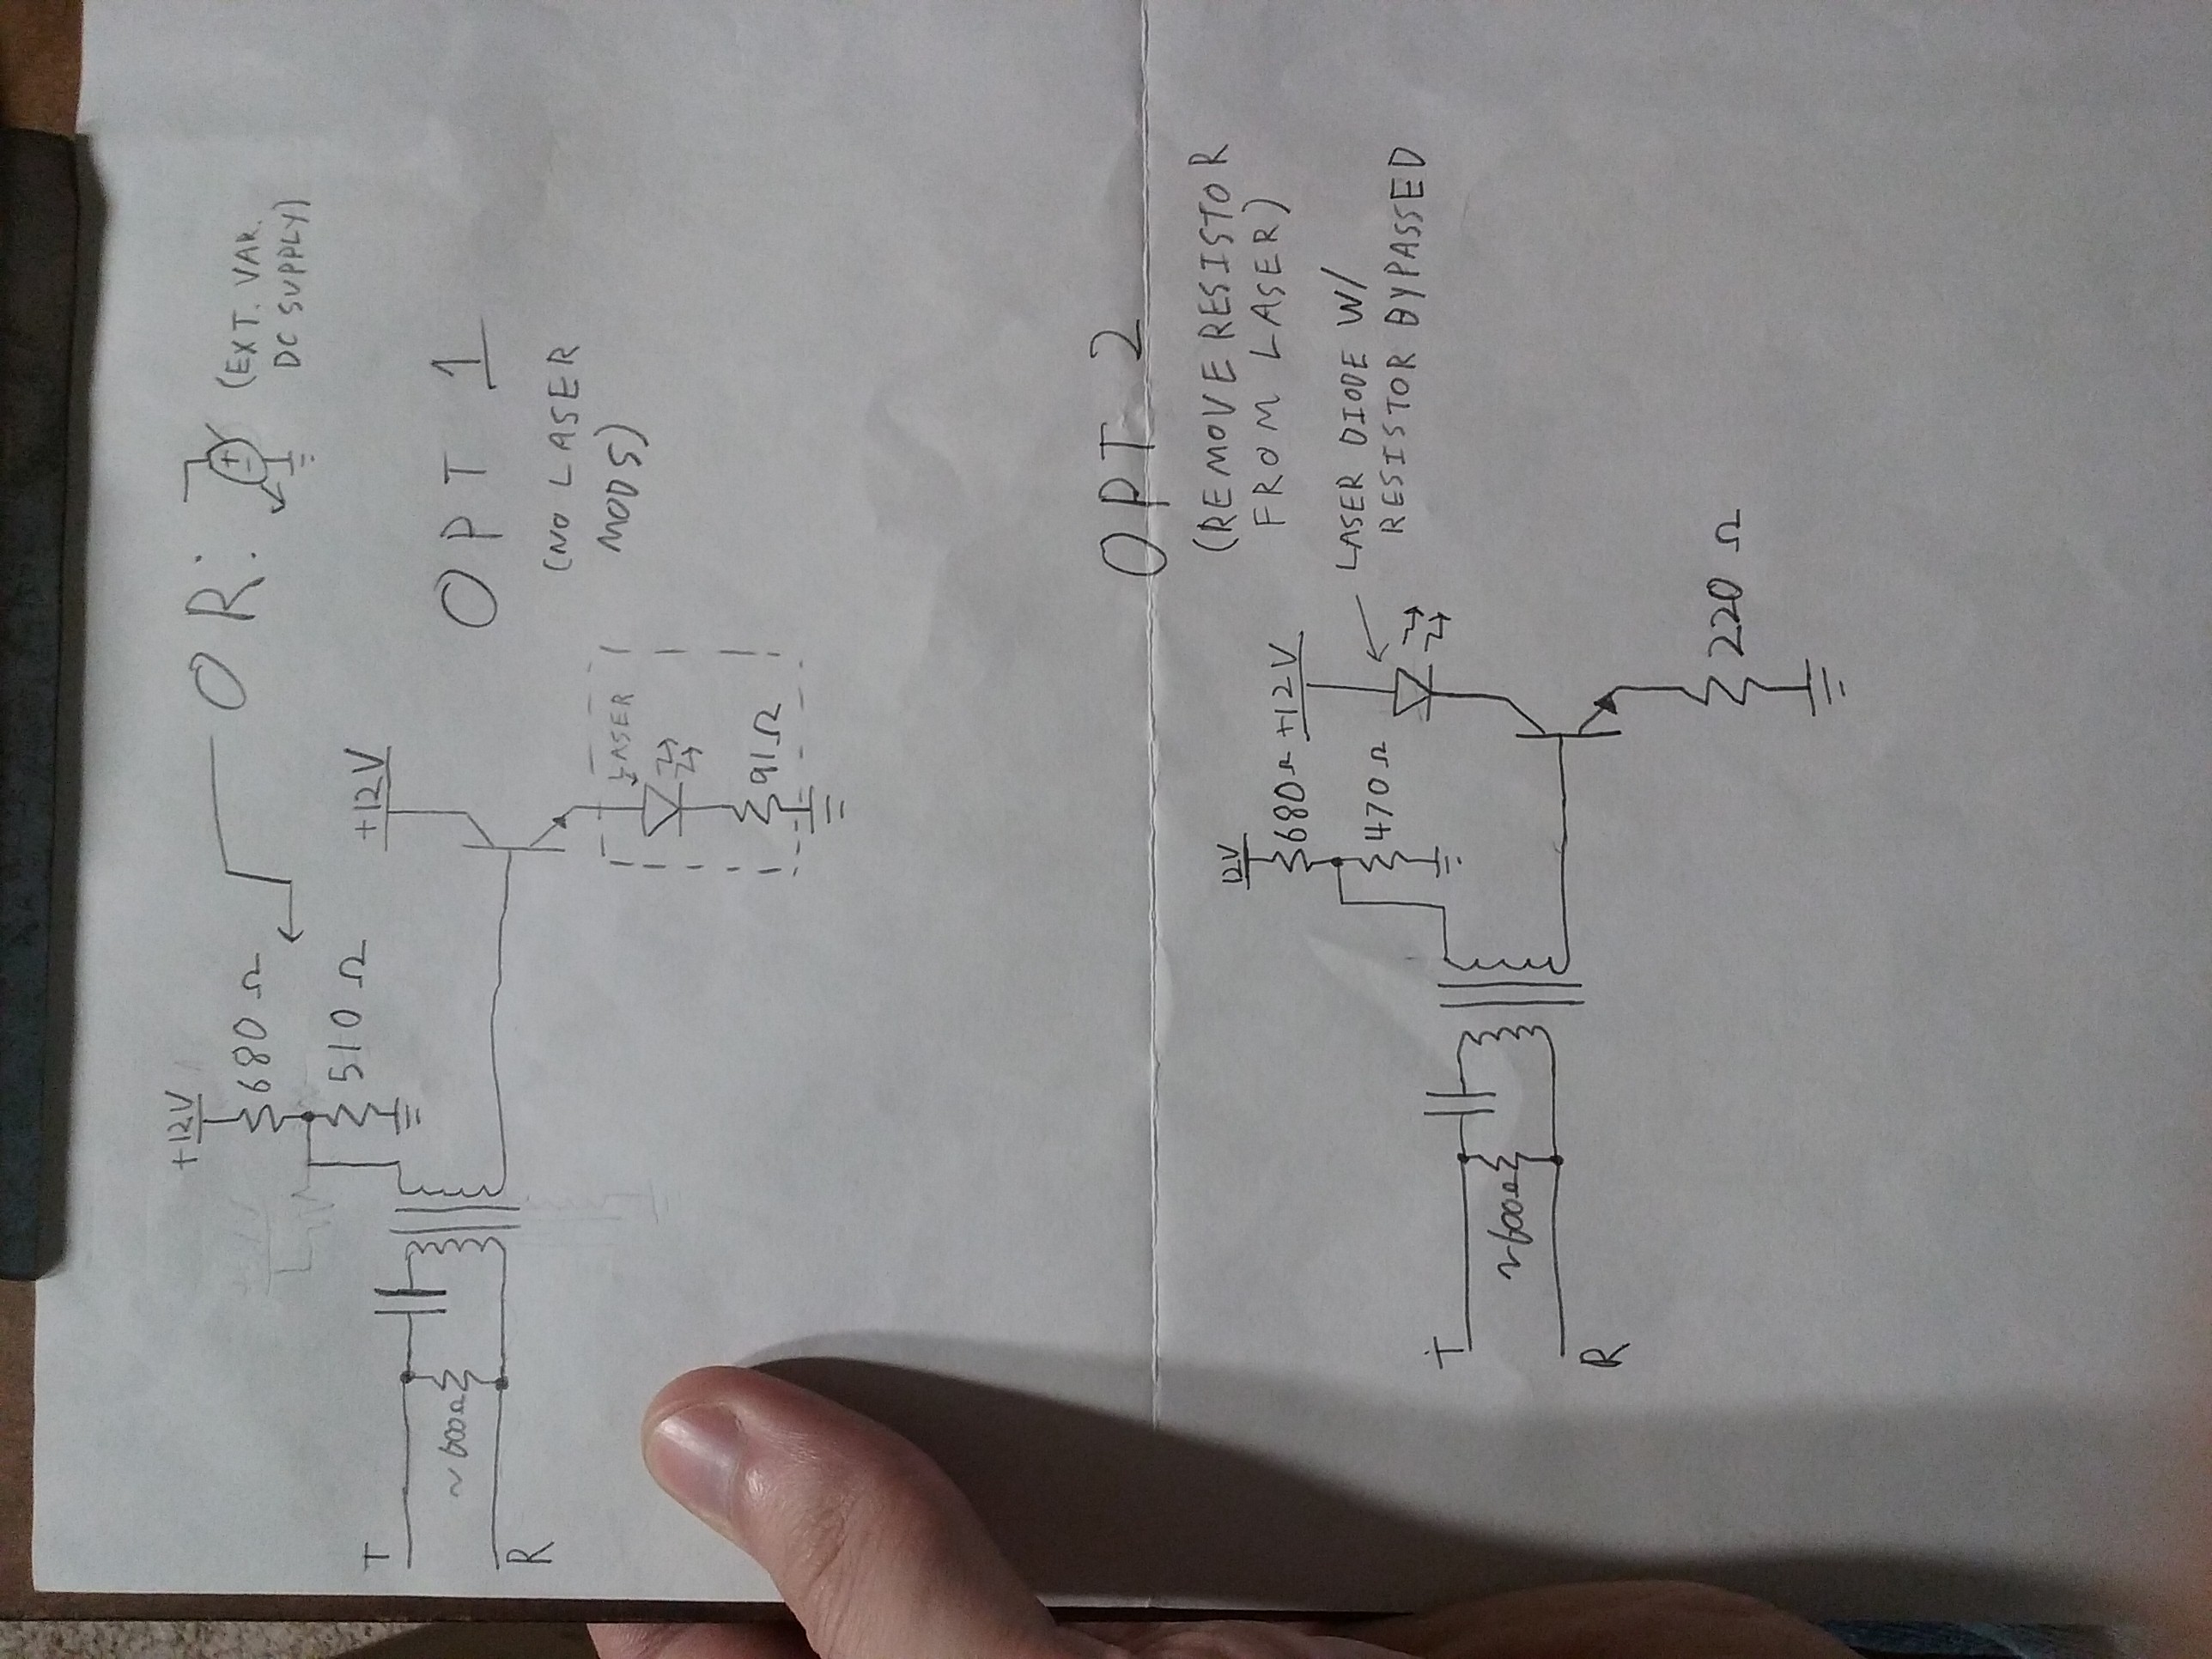 OR:
(EXT. VAR.
DC SUPPLY)
+12V
680 Ω
510 Ω
+12V
OPT 1
(NO LASER
MODS)
LASER
91Ω
T
~600Ω
R
OPT 2
(REMOVE RESISTOR
FROM LASER)
12V
680Ω
+12V
LASER DIODE W/
RESISTOR BYPASSED
470Ω
220 Ω
T
~600Ω
R